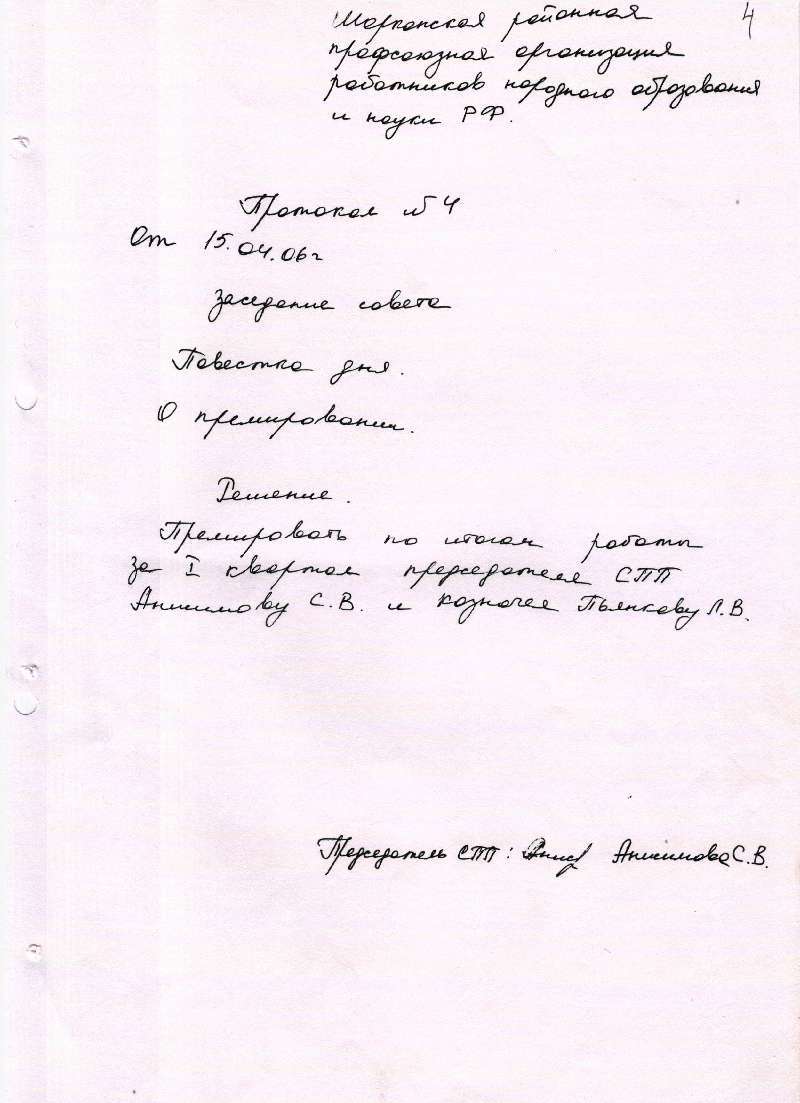 4
Шарканская районная
профсоюзная организация
работников народного образования
и науки РФ.
Протокол №4
От 15.04.06г
Заседание совета
Повестка дня.
О премировании.
Решение.
Премировать по итогам работы
за I квартал председателя СПП
Анисимову С.В. и казначея Пьянкову Л.В.
Председатель СПП: Анисимова С.В.